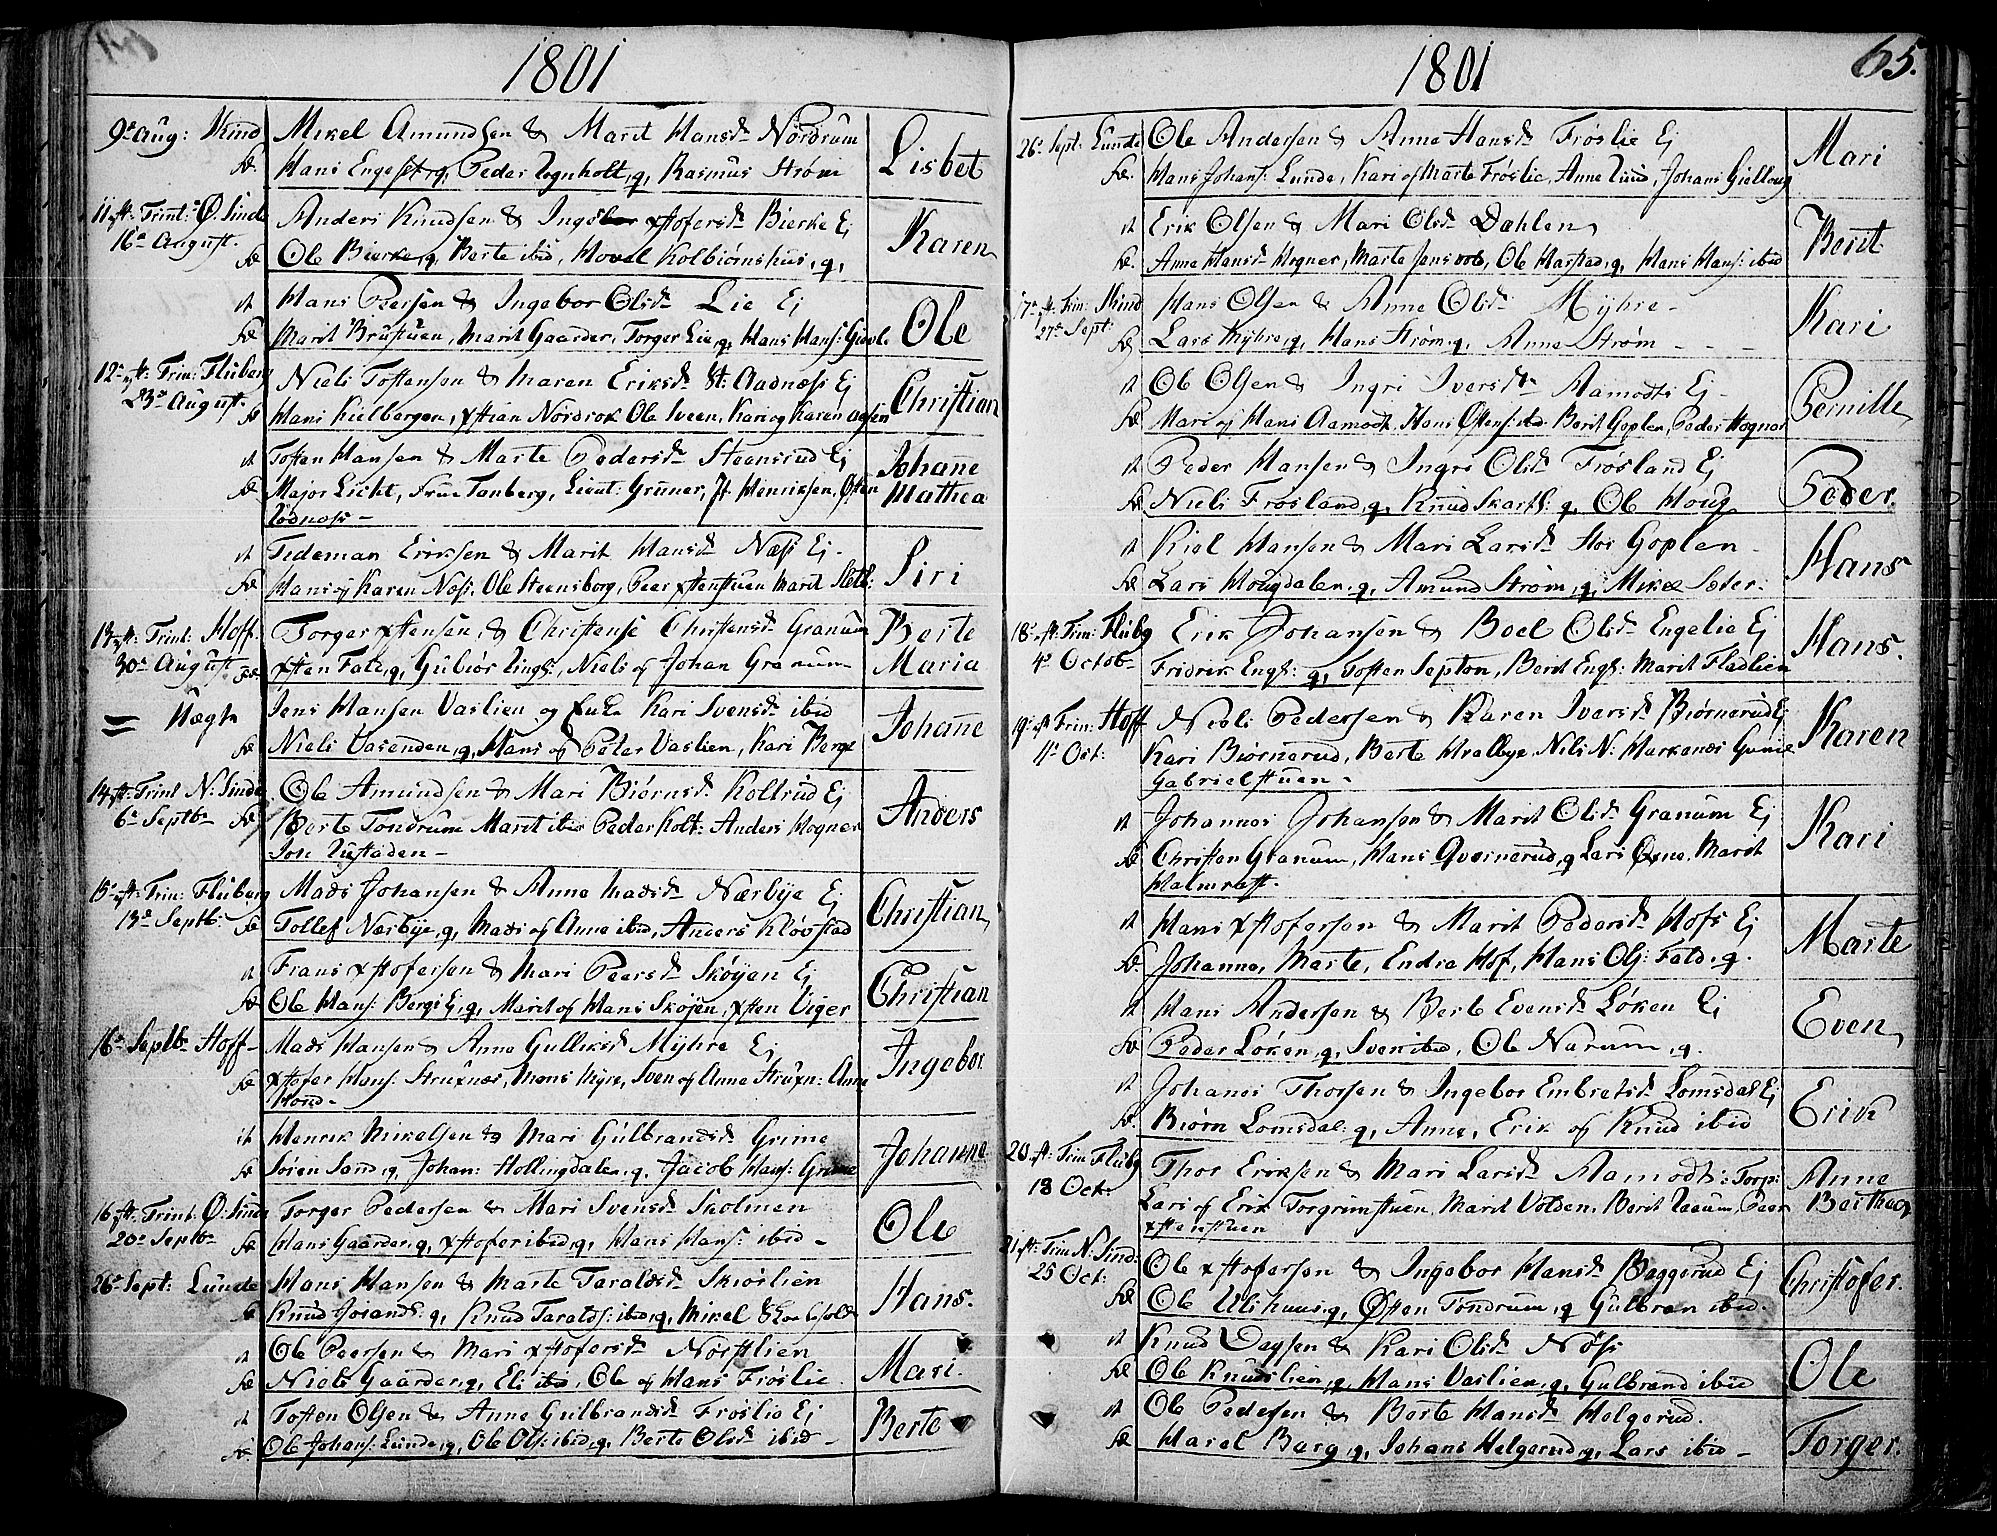 1801
9de Aug: Kind Mikel Amundsen & Marit Hansd. Nordrum Lisbet
Fd. Hans Engeset q, Peder Tognholt, q, Rasmus Strøm
11 ft: Trint: Ø: Sinde Anders Knudsen & Ingebor xstofersd. Bierke Ej Karen
16de August. Fd. Ole Bierke, q, Berte ibid, Kolbiørnshus, q,
it Hans Persen & Ingebor Olsd. Lie Ej Ole
Fd. Marit Brustuen, Marit Gaarder, Torger Lie, q, Hans Hans: Giøvle
12 ft: Trin: Fluberg Niels Tostensen & Maren Eriksd. St: Aadnæss Ej Christian
23de August. Fd. Hans Kielbergen, xstian Nordrox Ole Sveen, Kari og Karen
it Tosten Hansen & Marte Pedersd. Steensrud Ej Johane
Fd. Major Licht, Frue Tanberg, Lieut: Gruner, Jf Henriksen, Østen Mathea
Aadnæss
it Tideman Eriksen & Marit Hansd. Næss Ej Siri
Fd. Hans og Karen Næss, Ole Steensborg, Peer xstenstuen Marit Slette:
13 ft: Trint: Hoff. Torger xstensen, & Christense Christensd. Granum Berte
30de August Fd. xsten Fald, q, Gubiør Lings:, Niels og Johan Granum Maria
= Uægte Jens Hansen Vaslien og Enke Kari Svensd. ibid Johane
Fd. Niels Vasenden, q, Hans og Peter Vaslien, Kari Berge
14 ft: Trint N: Sinde Ole Amundsen & Mari Biørnsd. Koltrud Ej Anders
6de Septbr Fd. Berte Tondrum Marit ibid Peder Kolt: Anders Hogner
Jon Ustaden
15 ft: Trin: Fluberg Mads Johansen & Anne Madsd. Nærbye Ej Christian
13de Septb: Fd. Tollef Nærbye, q, Mads og Anne ibid, Anders Kløvstad
it Frans xstofersen & Mari Peersd. Skøyen Ej Christian
Fd. Ole Hans: Bergs Ej, q, Marit og Hans Skøyen, xsten Viger
16de Septbr Hoff Mads Hansen & Anne Gulliksd. Mÿhre Ej Ingebor
Fd. xstofer Hans: Struxnæs, Mons Myre, Sven og Anne Struxn: Anne
Hond
it Henrik Mikelsen & Mari Gulbrandsd. Grime Johanne
Fd. Søren Sand, q, Johan: Hollingdalen, q, Jacob Hans: Grime
16 ft: Trint. Ø: Sinde Torger Pedersen & Mari Svensd. Skolmen Ole
20de Septbr Fd. Hans Gaarder, q, xstofer ibid, q, Hans Hans: ibid
26de Sept: Lunde Hans Hansen & Marte Taraldsd. Skiøslien Hans.
Fd. Knud Josands: q, Knud Taralds: ibid, q, Mikel
it Ole Peersen & Mari xstofersd. Nørstlien Mari.
Fd. Niels Gaarder, q, Eli ibid, Ole og Hans Frøslie.
it Tosten Olsen & Anne Gulbrandsd. Frøslie Ej Berte
Fd. Ole Johans: Lunde, q, Ole Ols: ibid, q, Berte Olsd. ibid
1801 65.
26de Sept: Lunde Ole Andersen & Anne Hansd. Frøslie Ej Mari
Fd. Hans Johans: Lunde, Kari og Marte Frøslie, Anne Lund, Johans Giellouq
it Erik Olsen & Mari Olsd. Dahlen, Berit
Fd. Anne Hansd. Hogner, Marte Jensvol, Ole Harstad, q, Hans Hans: ibid
17de ft: Trin: Kind Hans Olsen & Anne Olsd. Mÿhre Kari
27de Sept: Fd. Lars Myhre, q, Hans Strøm, q, Anne Strøm
it Ole Olsen & Ingri Iversd. Aamodts Ej Pernille
Fd. Mari og Hans Aamodt, Hans Østens: ibid. Berit Goplen, Peder Hogner
it Peder Hansen & Ingri Olsd. Frøsland Ej Peder.
Fd. Niels Frøsland, q, Knud Skartl: q, Ole Houg
it Kiel Hansen & Mari Larsd. Hos Goplen Hans
Fd. Lars Hougdalen, q, Amund Strøm, q, Mikel Sæter.
18 ft: Trin: Flubg Erik Johansen & Boel Olsd. Engelie Ej Hans.
4de Octob. Fridrik Engl: q, Tosten Septon, Berit Engl: Marit Fladlien
19 ft Trin: Hoff Niels Pedersen & Karen Iversd. Biørnerud Ej Karen
11te Oct: Kari Biørnerud, Berte Hralbye, Nils N: Harkenæs Gunild
Gabrielstuen
it Johannes Johansen & Marit Olsd. Granum Ej Kari
Fd. Christen Granum, Hans Qværnerud, q Lars Øxne, Marit
Halmrast.
it Hans xstofersen & Marit Pedersd. Hofs Ej Marte
Fd. Johanne, Marte, Endre Hof, Hans Ols: Fald, q.
it Hans Andersen & Berte Evensd. Løken Ej Even
Fd. Peder Løken, q, Sven ibid, Ole Narum, q.
it Johanes Thorsen & Ingebor Embretsd. Lomsdal Ej Erik
Fd. Biørn Lomsdal: q, Anne, Erik og Knud ibid
20 ft: Trin: Flubg Thor Eriksen & Mari Larsd. Aamodts: Torp: Anne
18 Oct: Lars og Erik Torgrimstuen, Marit Volden, Berit Peer Berthea
xstenstuen
21 ft: Trin N: Sind: Ole xstofersen & Ingebor Hansd. Baggerud Ej Christofer.
25 Oct: Fd. Ole Ulshuus, q, Østen Tondrum, q Gulbran ibid.
it Knud Dagsen & Kari Olsd. Nøss Ole
Fd. Ole Knudslien, q, Hans Vaslien, q, Gulbrand ibid
it Ole Pedersen & Berte Hansd. Helgerud. Torger.
Fd. Harel Berg, q, Johans Helgerud, q, Lars ibid